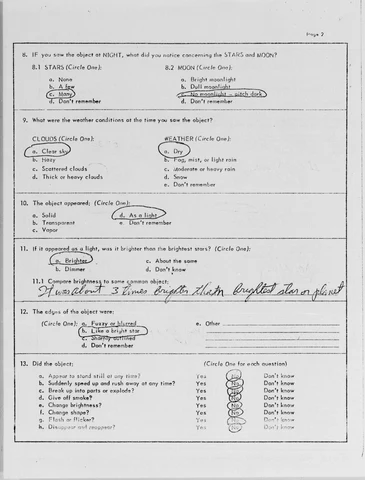 Page 2
8. IF you saw the object at NIGHT, what did you notice concerning the STARS and MOON?
8.1 STARS (Circle One): 8.2 MOON (Circle One):
a. None a. Bright moonlight
b. A few b. Dull moonlight
c. Many c. No moonlight – pitch dark
d. Don't remember d. Don't remember
9. What were the weather conditions at the time you saw the object?
CLOUDS (Circle One): WEATHER (Circle One):
a. Clear sky a. Dry
b. Hazy b. Fog, mist, or light rain
c. Scattered clouds c. Moderate or heavy rain
d. Thick or heavy clouds d. Snow
e. Don't remember
10. The object appeared: (Circle One):
a. Solid d. As a light
b. Transparent e. Don't remember
c. Vapor
11. If it appeared as a light, was it brighter than the brightest stars? (Circle One):
a. Brighter c. About the same
b. Dimmer d. Don't know
11.1 Compare brightness to some common object:
It was about 3 times brighter than Brightest star or planet
12. The edges of the object were:
(Circle One): a. Fuzzy or blurred e. Other
b. Like a bright star
c. Sharply outlined
d. Don't remember
13. Did the object: (Circle One for each question)
a. Appear to stand still at any time? Yes No Don't know
b. Suddenly speed up and rush away at any time? Yes No Don't know
c. Break up into parts or explode? Yes No Don't know
d. Give off smoke? Yes No Don't know
e. Change brightness? Yes No Don't know
f. Change shape? Yes No Don't know
g. Flash or flicker? Yes No Don't know
h. Disappear and reappear? Yes No Don't know